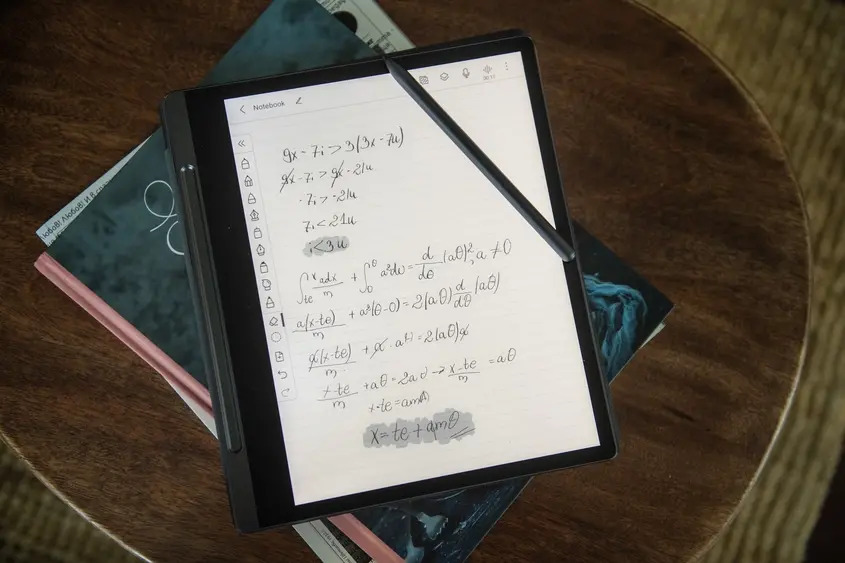 Notebook
9x - 7i > 3(3x - 7u)
9x - 7i > 9x - 21u
-7i > -21u
7i < 21u
i < 3u
∫ₜₑˣ adx/m + ∫₀^θ a²dω = d/dθ (aθ)², a ≠ 0
a(x-te)/m + a²(θ-0) = 2(aθ) d/dθ (aθ)
a(x-te)/m + a · aθ = 2(aθ)a
x-te/m + aθ = 2aθ → x-te/m = aθ
x-te = amθ
x = te + amθ